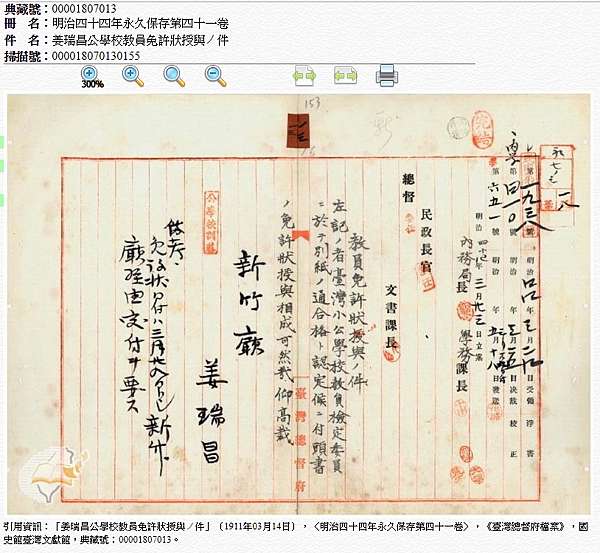 典藏號：00001807013
冊　名：明治四十四年永久保存第四十一卷
件　名：姜瑞昌公學校教員免許狀授與ノ件
掃描號：000018070130155
300%
153
明治
日受領
淨書
明治
日決裁
校正
六五一號
明治
日發送
明治四十四年三月
日立案
內務局長
學務課長
民政長官
總督
文書課長
教員免許狀授與ノ件
左記ノ者臺灣小公學校教員檢定委員
ニ於テ別紙ノ通合格ト認定候ニ付頭書
ノ免許狀授與相成可然哉仰高裁
臺灣總督府
新竹廳
姜瑞昌
備考
廳經由交付ヲ要ス
引用資訊：「姜瑞昌公學校教員免許狀授與ノ件」（1911年03月14日），〈明治四十四年永久保存第四十一卷〉，《臺灣總督府檔案》，國
史館臺灣文獻館，典藏號：00001807013。